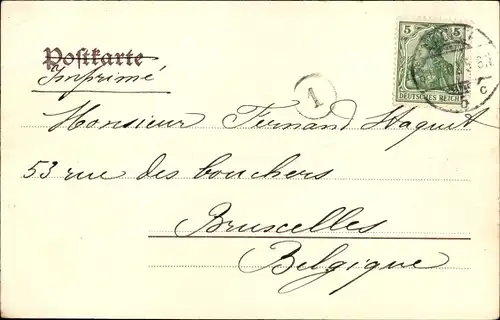 Postkarte
Imprimé
5 5
DEUTSCHES REICH
1
c
Monsieur Fernand Haquet
53 rue des bouchers
Bruxcelles
Belgique